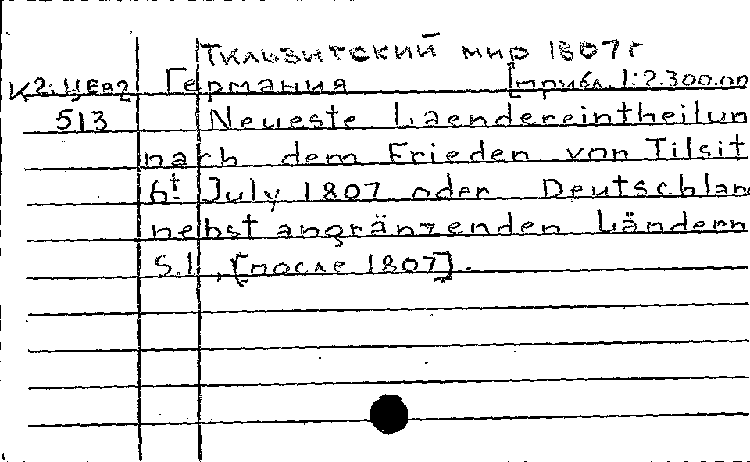 Тильзитский мир 1807 г
К2: ЦЕв2 Германия [прибл. 1:2.300.00
513 Neueste Laendereintheilun
nach dem Frieden von Tilsit
6t July 1807 oder Deutschlan
nebst angränzenden Ländern
S.l., [после 1807].